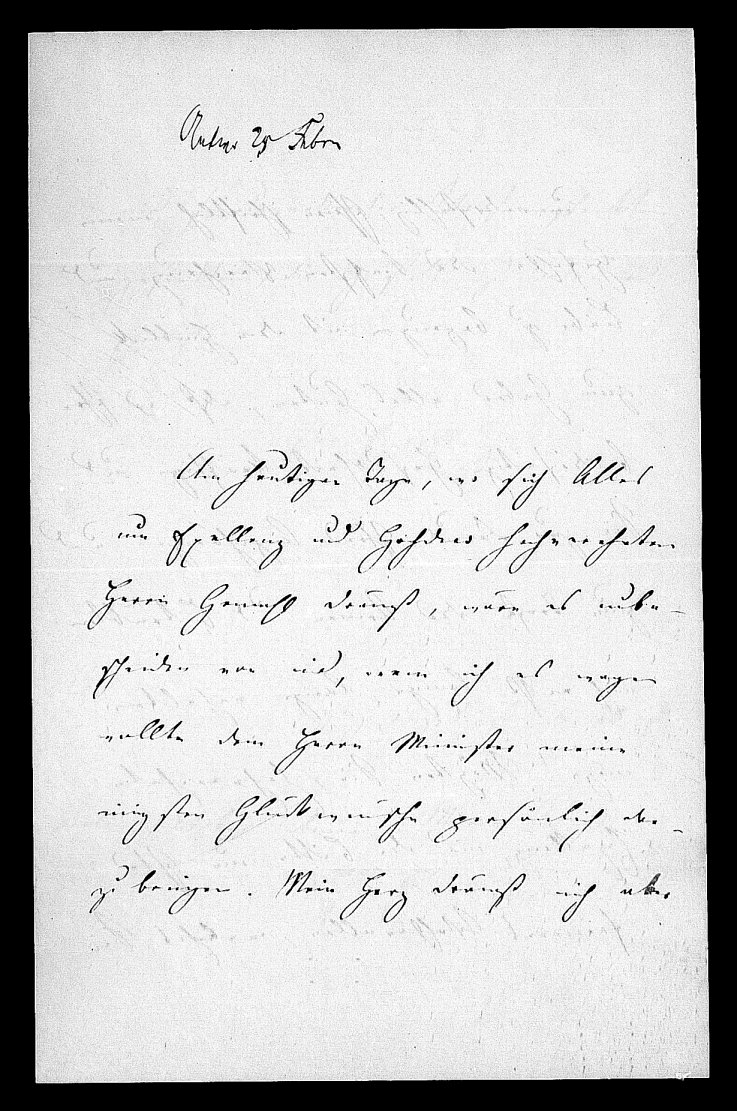 25 Febr
Am heutigen Tage, wo sich Alles
um Exellenz und Hochdero hochverehrten
Herrn Gemahl drängt, wäre es unbe-
scheiden von mir, wenn ich es wagen
wollte dem Herrn Minister meine
innigsten Glückwünsche persönlich dar-
zubringen. Mein Herz drängt mich aber